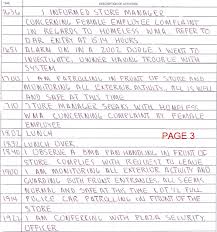 TIME DESCRIPTION OF ACTIVITIES
1636 I INFORMED STORE MANAGER
CONCERNING FEMALE EMPLOYEE COMPLAINT
IN REGARDS TO HOMELESS WMA. REFER TO
DAR ENTRY AT 1614 HOURS.
1651 ALARM ON IN A 2002 DODGE. I WENT TO
INVESTIGATE, OWNER HAVING TROUBLE WITH
SYSTEM.
1700 I AM PATROLLING IN FRONT OF STORE AND
MONITORING ALL EXTERNAL ACTIVITY. ALL IS WELL
AND SAFE AT THIS TIME.
1710 STORE MANAGER SPEAKS WITH HOMELESS
WMA CONCERNING COMPLAINT BY FEMALE
EMPLOYEE.
1802 LUNCH PAGE 3
1832 LUNCH OVER.
1840 I OBSERVE A BMA PAN HANDLING IN FRONT OF
STORE COMPLIES WITH REQUEST TO LEAVE
1900 I AM MONITORING ALL EXTERIOR ACTIVITY AND
GUARDING BOTH FRONT ENTRANCES. ALL SEEMS
NORMAL AND SAFE AT THIS TIME. LOT IS FULL
1914 POLICE CAR PATROLLING IN FRONT OF THE
STORE.
I AM CONFERRING WITH PLAZA SECURITY
OFFICER